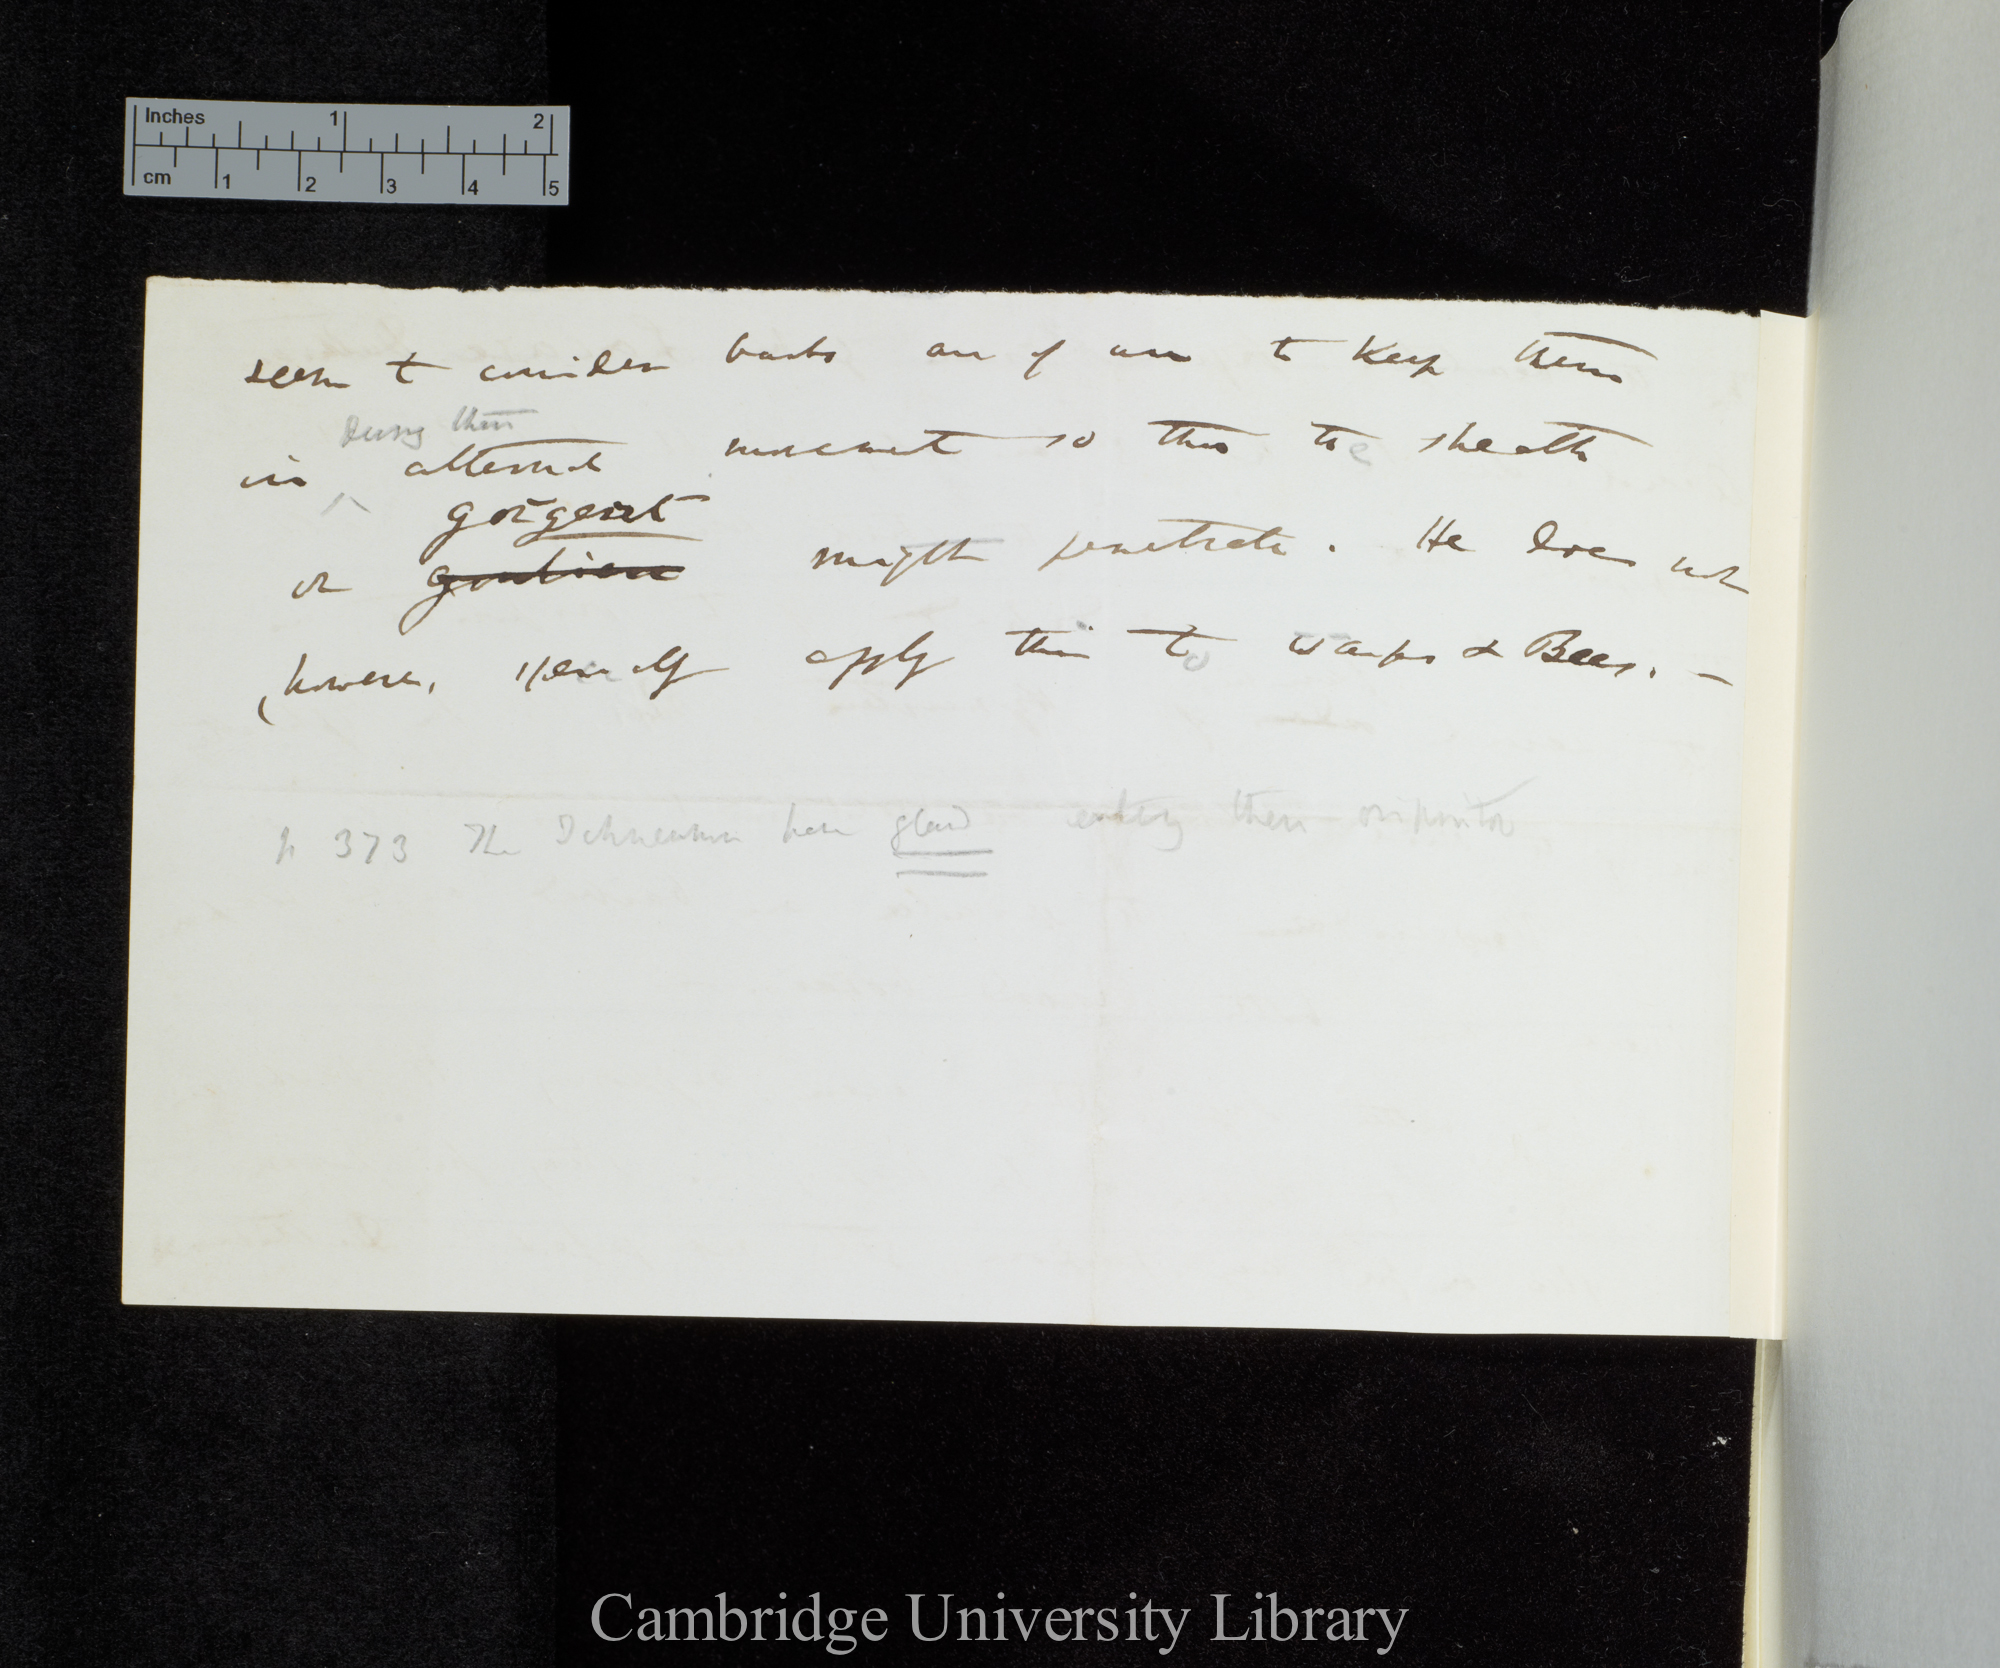 Inches 1 2
cm 1 2 3 4 5
seem to consider barbs are of use to keep them
During their
in alternate movement so that the sheath
gorgeret
or might penetrate. He does not
however, specially apply this to wasps & Bees. —
p 373 The Ichneumon have gland entering their ovipositor
Cambridge University Library